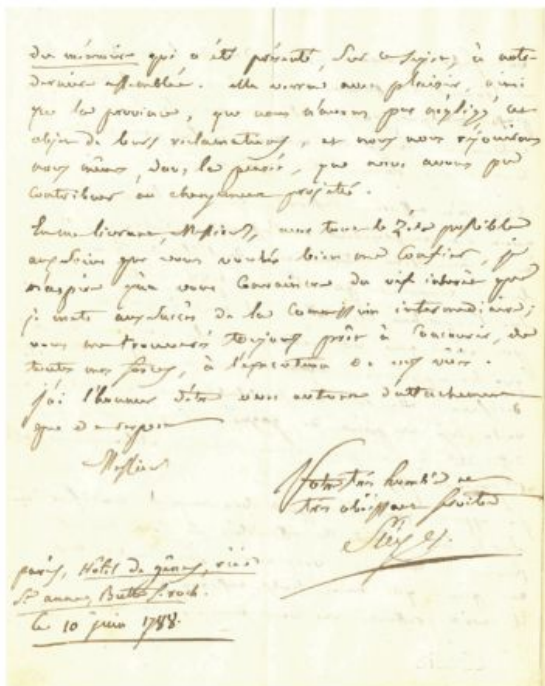 du mémoire qui a été présenté, sur ce sujet, à notre
dernière assemblée. elle verra avec plaisir, ainsi
que la province, que nous n'avons pas négligé cet
objet de leurs réclamations, et nous nous réjouirons
nous mêmes, dans la pensée, que nous avons pu
contribuer au changement projetté.
En me livrant, Messieurs, avec tout le zèle possible
que vous voulés bien me confier, je
n'aspire qu'à vous convaincre du vif intérêt que
je mets aux succès de la Commission intermédiaire;
vous me trouverés toujours prêt à concourir, de
toutes mes forces, à l'exécution de ses vües.
j'ai l'honneur d'être avec autant d'attachement
que de respect
Messieurs
Votre très humble et
très obéissant serviteur
Siéyes.
paris, Hôtel de gênes, rüe
Ste annes, Butte St. roch.
le 10 juin 1788.